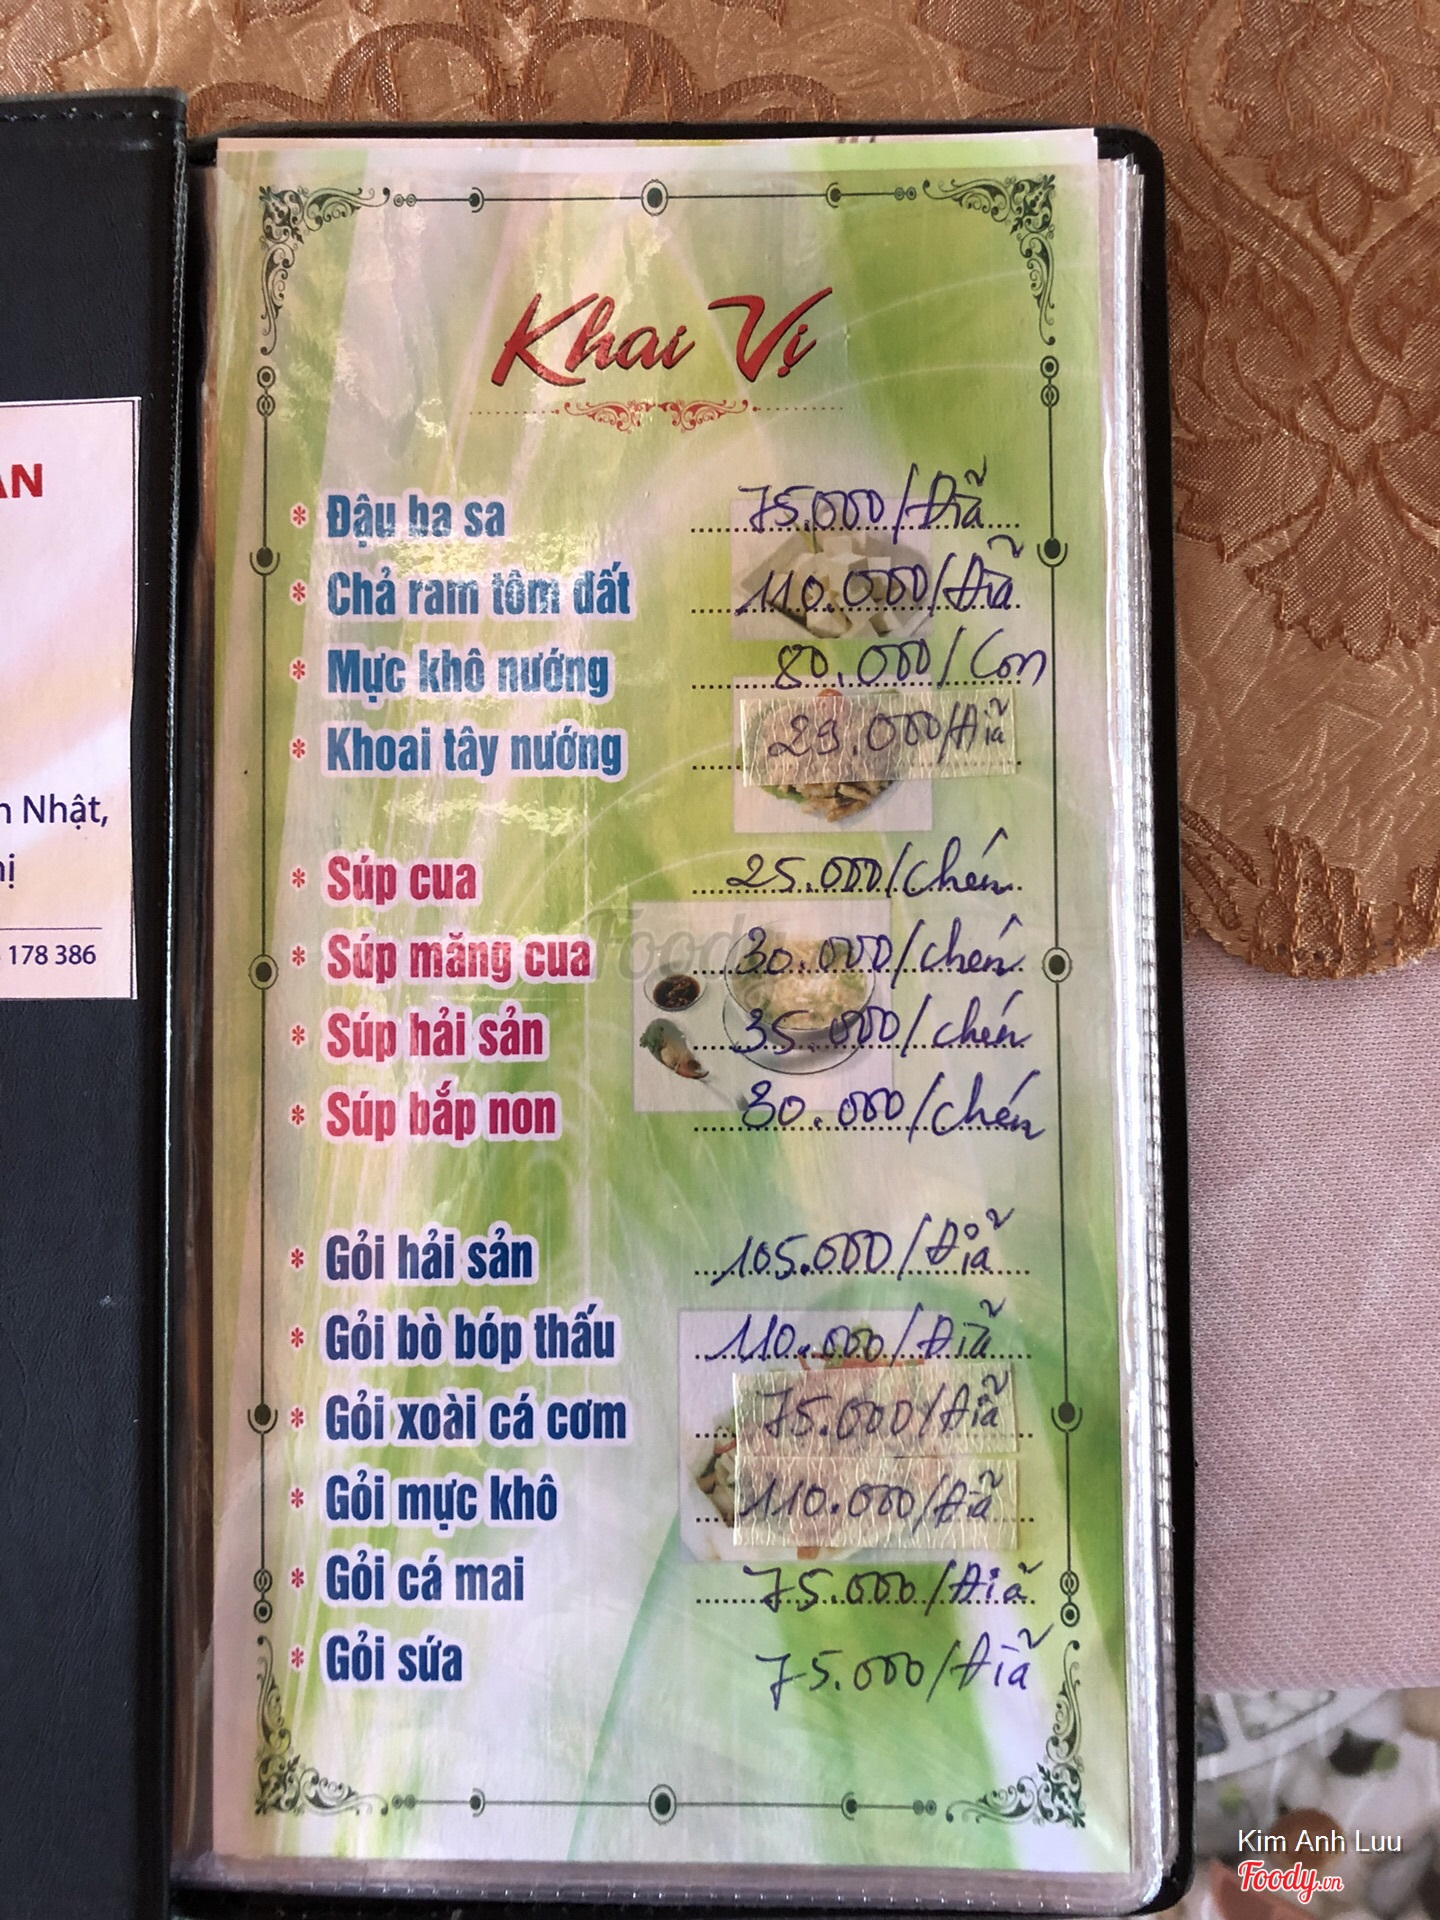 AN
n Nhật,
hị
178 386
Khai Vị
* Đậu ha sa 75.000/Đĩa
* Chả ram tôm đất 110.000/Đĩa
* Mực khô nướng 80.000/Con
* Khoai tây nướng 29.000/Đĩa
* Súp cua 25.000/chén
* Súp măng cua 30.000/chén
* Súp hải sản 35.000/chén
* Súp bắp non 30.000/chén
* Gỏi hải sản 105.000/Đĩa
* Gỏi bò bóp thấu 110.000/Đĩa
* Gỏi xoài cá cơm 75.000/Đĩa
* Gỏi mực khô 110.000/Đĩa
* Gỏi cá mai 75.000/Đĩa
* Gỏi sứa 75.000/Đĩa
Foody
Kim Anh Luu
Foody.vn